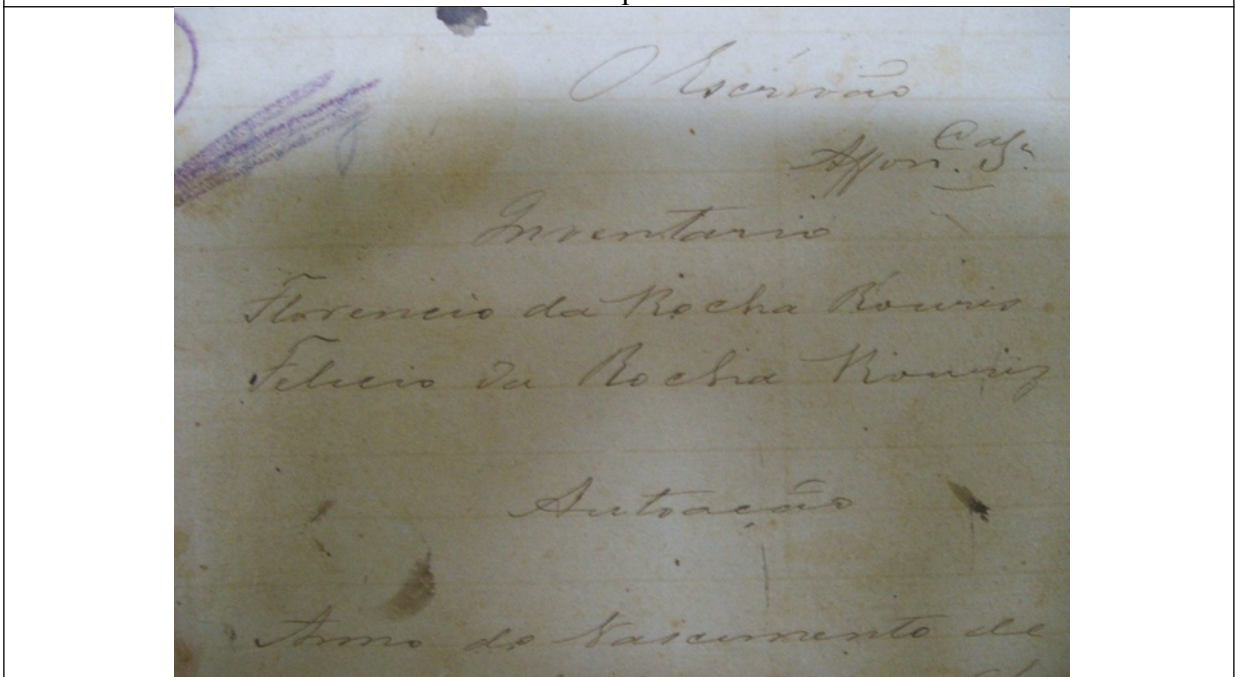 O Escrivão
Affon.
Inventario
Florencio da Rocha Rouris
Felicio da Rocha Rouriz
Autoação
Anno do Nascimento de